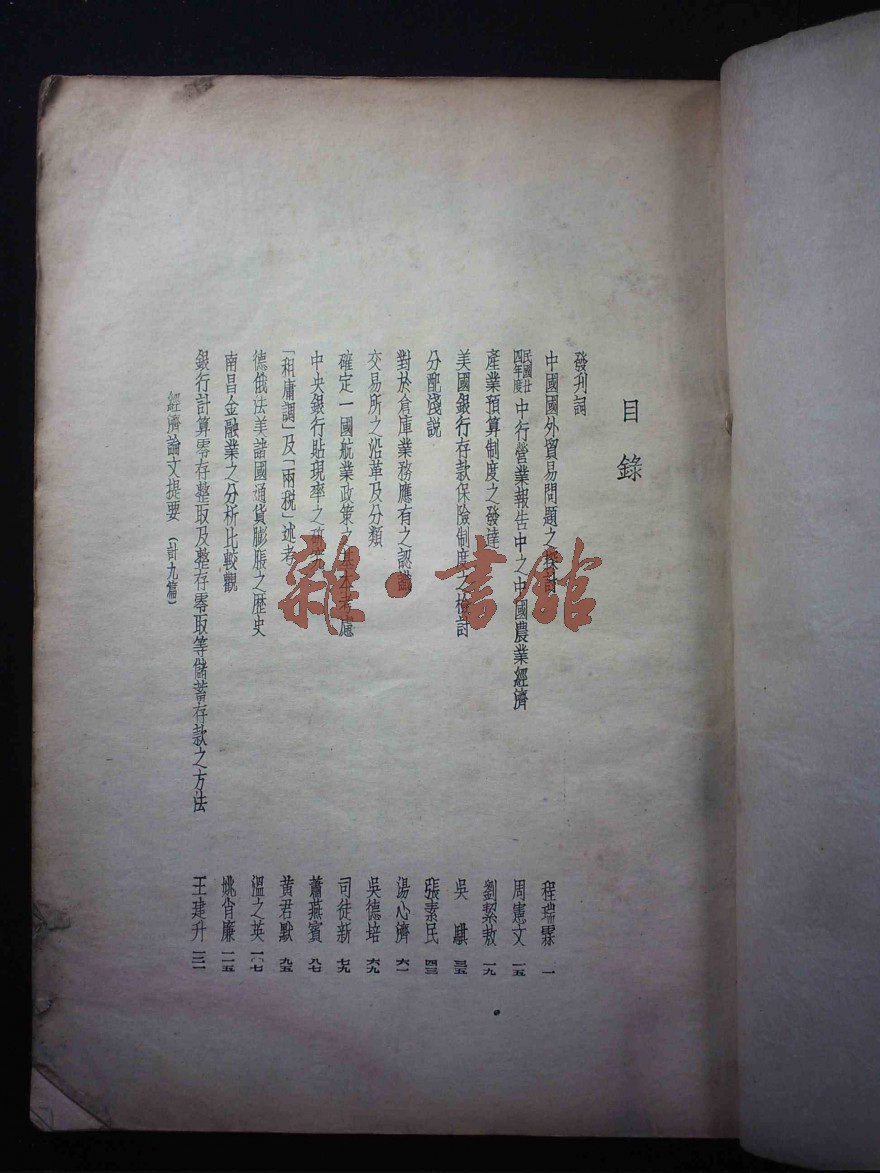 目錄
發刊詞
中國國外貿易問題之檢討 程瑞霖 一
民國廿四年度中行營業報告中之中國農業經濟 周憲文 一五
產業預算制度之發達 劉絜敖 一九
美國銀行存款保險制度之檢討 吳 騏 三五
分配淺說 張素民 四三
對於倉庫業務應有之認識 湯心濟 六一
交易所之沿革及分類 吳德培 六九
確定一國航業政策之基本考慮 司徒新 七九
中央銀行貼現率之研 蕭燕賓 八七
「租庸調」及「兩稅」述考 黃君默 九五
德俄法美諸國通貨膨脹之歷史 溫之英 一〇七
南昌金融業之分析比較觀 姚肖廉 一一五
銀行計算零存整取及整存零取等儲蓄存款之方法 王建升 一三一
經濟論文提要（計九篇）
雜·書館